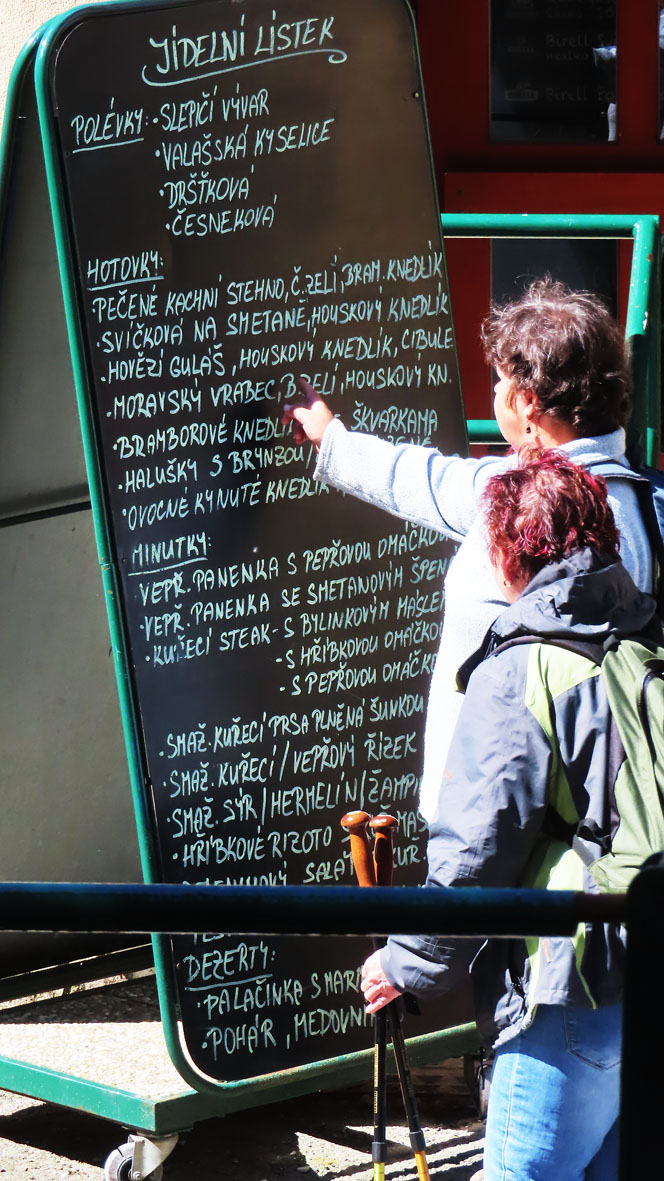 JÍDELNÍ LÍSTEK
POLÉVKY: • SLEPIČÍ VÝVAR
• VALAŠSKÁ KYSELICE
• DRŠŤKOVÁ
• ČESNEKOVÁ
HOTOVKY:
• PEČENÉ KACHNÍ STEHNO, Č.ZELÍ, BRAM. KNEDLÍK
• SVÍČKOVÁ NA SMETANĚ, HOUSKOVÝ KNEDLÍK
• HOVĚZÍ GULÁŠ, HOUSKOVÝ KNEDLÍK, CIBULE
• MORAVSKÝ VRABEC, B.ZELÍ, HOUSKOVÝ KN.
• BRAMBOROVÉ KNEDL ŠKVARKAMA
• HALUŠKY S BRYNZOU/
• OVOCNÉ KYNUTÉ KNEDLÍ
MINUTKY:
• VEPŘ. PANENKA S PEPŘOVOU OMÁČKOU
• VEPŘ. PANENKA SE SMETANOVÝM ŠPEN
• KUŘECÍ STEAK - S BYLINKOVÝM MÁSLEM
- S HŘÍBKOVOU OMÁČKOU
- S PEPŘOVOU OMÁČKO
• SMAŽ. KUŘECÍ PRSA PLNĚNÁ ŠUNKOU
• SMAŽ. KUŘECÍ / VEPŘOVÝ ŘÍZEK
• SMAŽ. SÝR / HERMELÍN / ŽAMPI
• HŘÍBKOVÉ RIZOTO
SALÁT KUR.
DEZERTY:
• PALAČINKA S MAR
• POHÁR, MEDOVNÍ
Birell
Birell